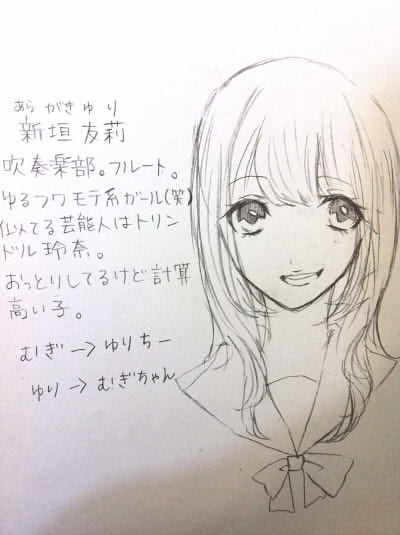 あら がき ゆり
新垣 友莉
吹奏楽部。フルート。
ゆるフワ モテ系ガール(笑)
似てる芸能人はトリン
ドル 玲奈。
おっとりしてるけど計算
高い子。
むぎ -> ゆりちー
ゆり -> むぎちゃん